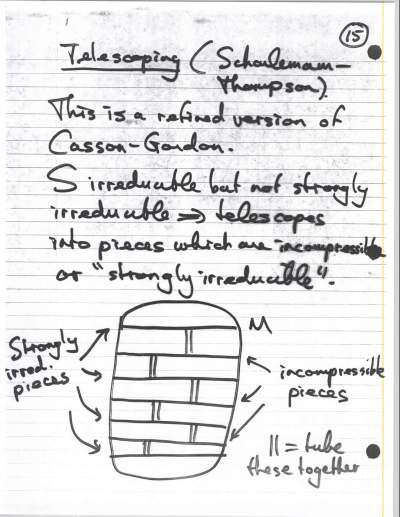 15
Telescoping (Scharlemann-
Thompson).
This is a refined version of
Casson-Gordon.
S irreducible but not strongly
irreducible ⇒ telescopes
into pieces which are incompressible
or "strongly irreducible".
M
Strongly
irred.
pieces
incompressible
pieces
|| = tube
these together